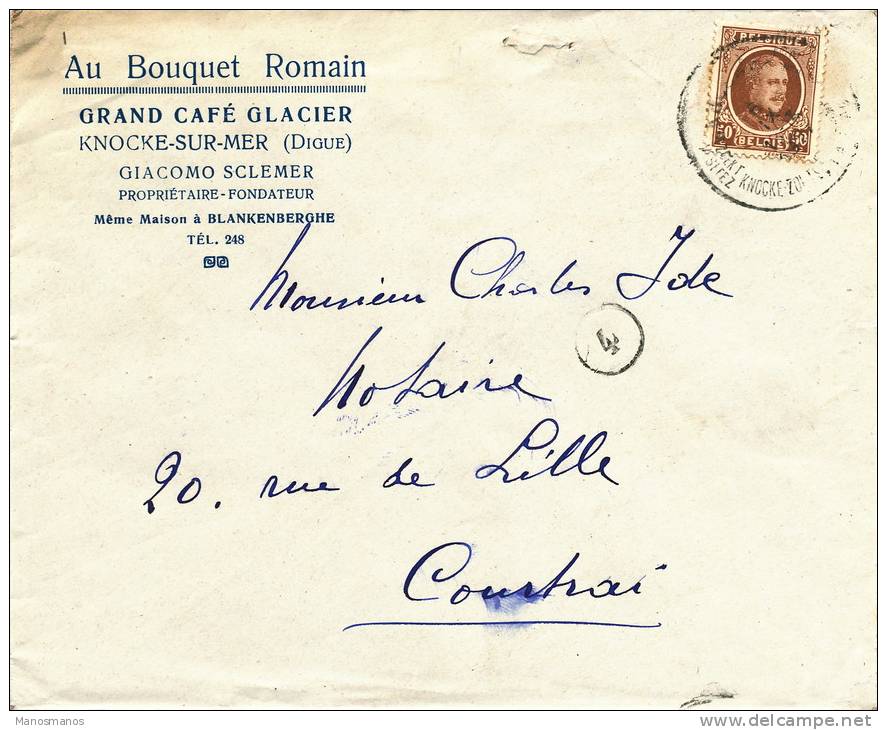 Au Bouquet Romain
GRAND CAFÉ GLACIER
KNOCKE-SUR-MER (DIGUE)
GIACOMO SCLEMER
PROPRIÉTAIRE-FONDATEUR
Même Maison à BLANKENBERGHE
TÉL. 248
BELGIQUE
50
BELGIE
SITEZ KNOCKE-ZOU
Monsieur Charles Ide
4
Notaire
20. rue de Lille
Courtrai
Manosmanos
delcampe.net